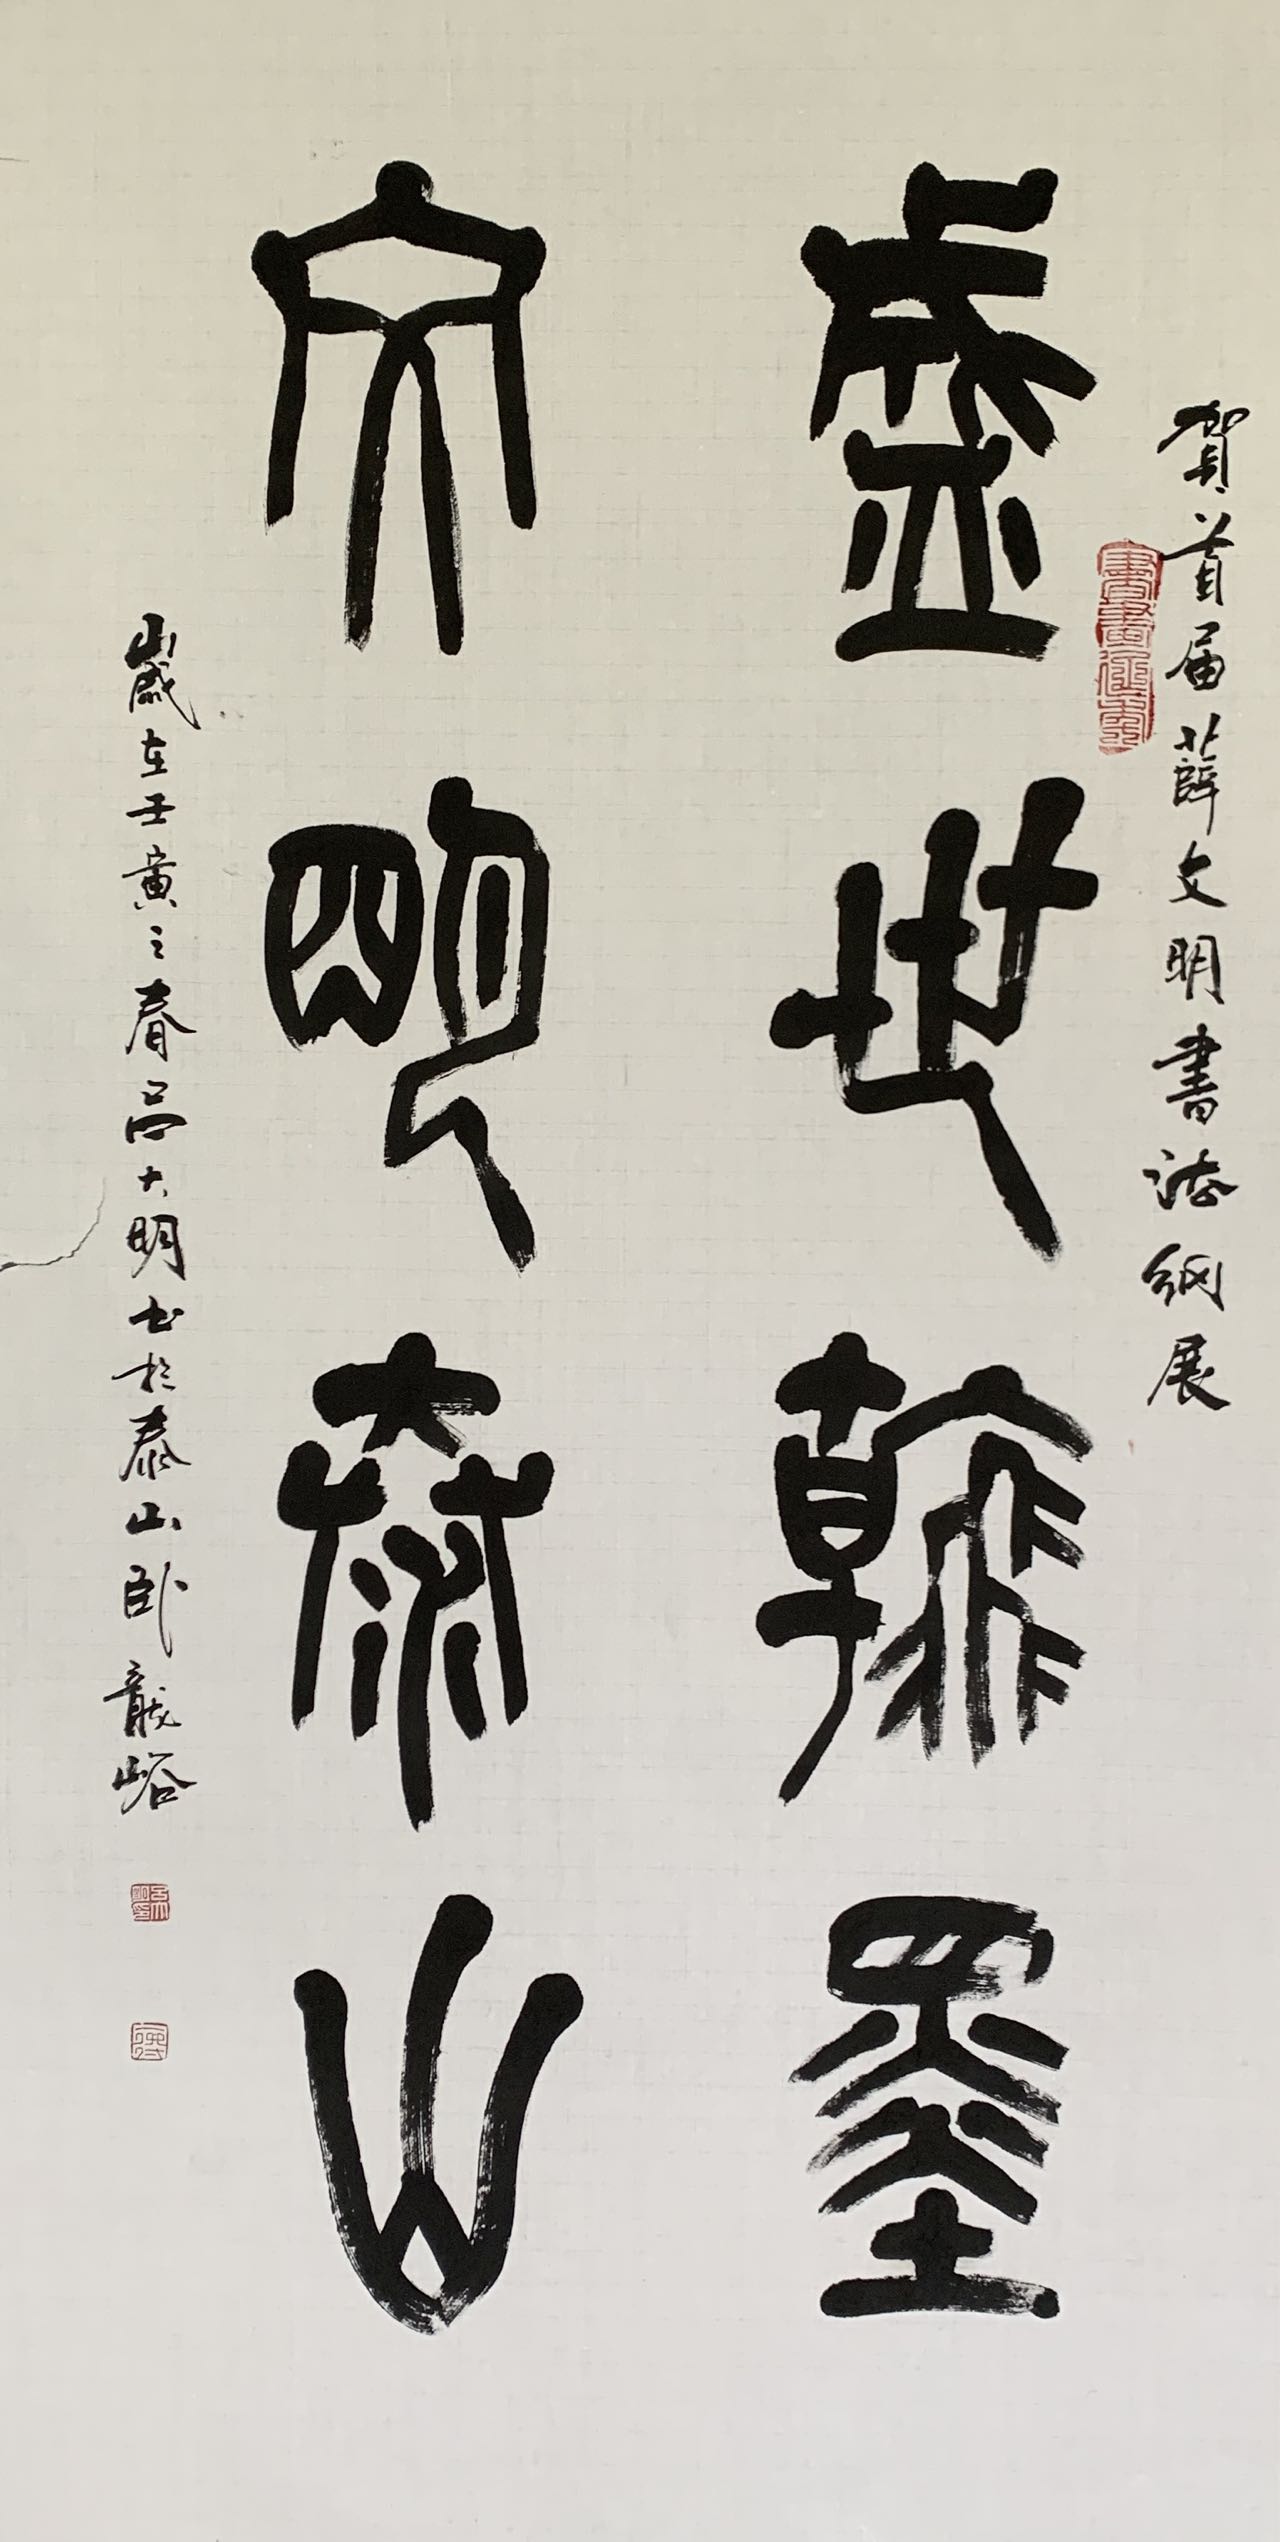 賀首届薛文明書法網展
盛世翰墨
文明泰山
歲在壬寅之春呂大明书於泰山卧龍峪